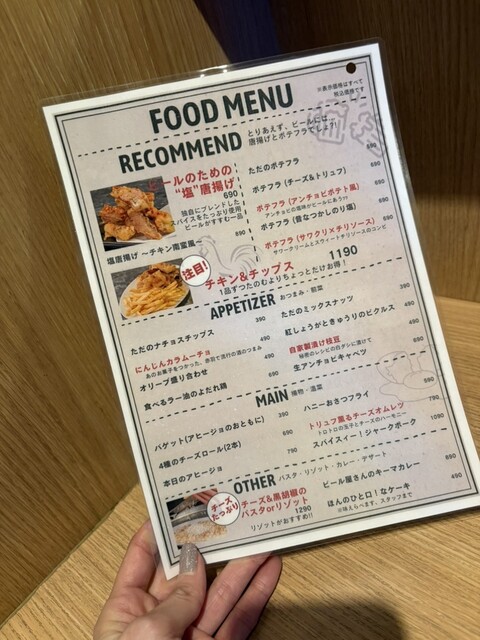 FOOD MENU
※表示価格はすべて
税込価格です
RECOMMEND
とりあえず、ビールには…
唐揚げとポテフラでしょ?!
ビールのための
"塩"唐揚げ
690
独自にブレンドした
スパイスをたっぷり使用
ビールがすすむ一品
塩唐揚げ 〜チキン南蛮風〜
890
ただのポテフラ
590
ポテフラ (チーズ&トリュフ)
690
ポテフラ (アンチョビポテト風)
690
アンチョビの塩味がビールにあう!?
ポテフラ (昔なつかしのり塩)
690
ポテフラ (サワクリ×チリソース)
690
サワークリームとスウィートチリソースのコンビ
注目!
チキン&チップス
1190
1品ずつたのむよりちょっとだけお得!
APPETIZER おつまみ・前菜
ただのナチョスチップス
390
にんじんカラムーチョ
490
あのお菓子をつかった、赤羽で流行の酒のつまみ
オリーブ盛り合わせ
490
食べるラー油のよだれ鶏
690
ただのミックスナッツ
390
紅しょうがときゅうりのピクルス
490
自家製漬け枝豆
490
秘密のレシピの白ダシに漬けて
生アンチョビキャベツ
690
MAIN 揚物・温菜
バゲット(アヒージョのおともに)
390
4種のチーズロール(2本)
690
本日のアヒージョ
790
ハニーおさつフライ
590
トリュフ薫るチーズオムレツ
790
トロトロの玉子とチーズのハーモニー
スパイスィー!ジャークポーク
1090
OTHER パスタ・リゾット・カレー・デザート
チーズ
たっぷり
チーズ&黒胡椒の
パスタorリゾット
1290
リゾットがおすすめ!!
ビール屋さんのキーマカレー
890
ほんのひと口!なケーキ
490
※味えらべます、スタッフまで